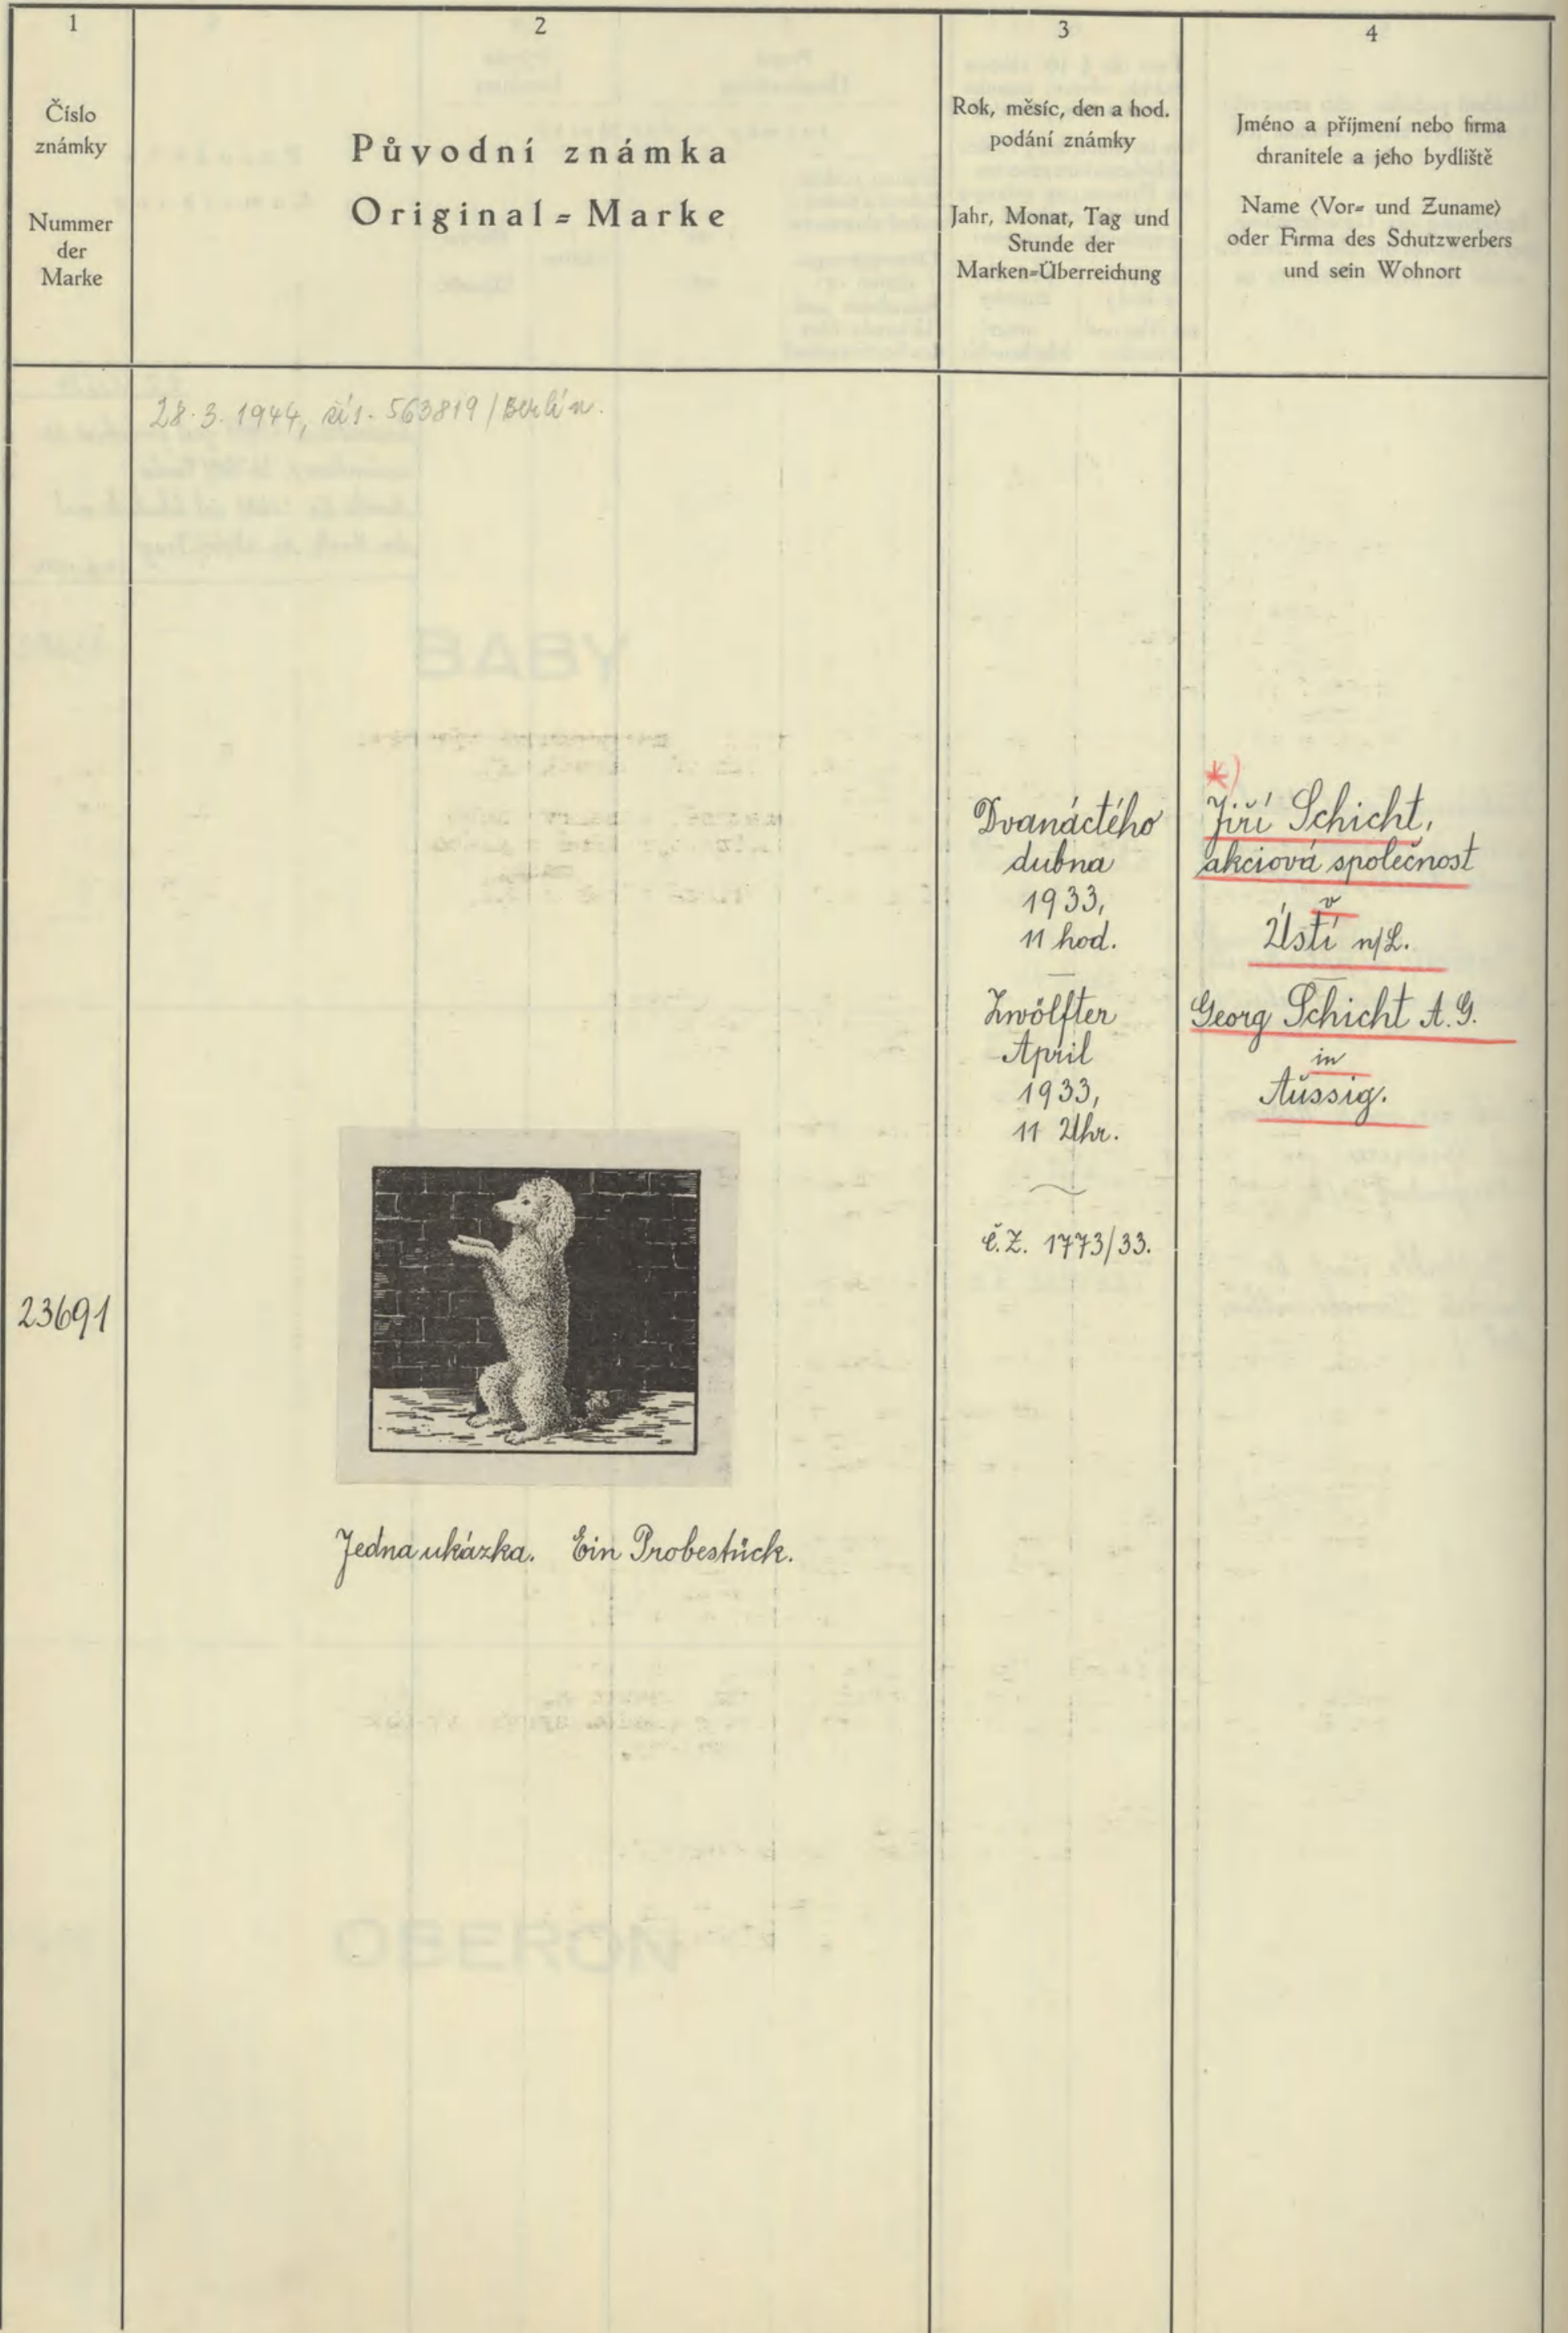 1
Číslo
známky
Nummer
der
Marke
2
Původní známka
Original=Marke
3
Rok, měsíc, den a hod.
podání známky
Jahr, Monat, Tag und
Stunde der
Marken=Überreichung
4
Jméno a příjmení nebo firma
chranitele a jeho bydliště
Name (Vor= und Zuname)
oder Firma des Schutzwerbers
und sein Wohnort
28.3.1944, 563819/Berlín.
23691
Jedna ukázka. Ein Probestück.
Dvanáctého
dubna
1933,
11 hod.
Zwölfter
April
1933,
11 Uhr.
č.Z. 1773/33.
*)
Jiří Schicht,
akciová společnost
v
Ústí n/L.
Georg Schicht A.G.
in
Aussig.
BABY
OBERON